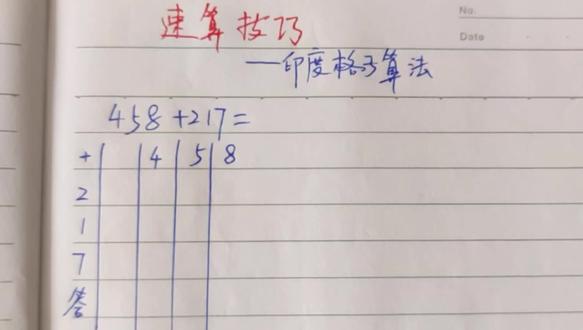 速算技巧
No.
Date
—印度格子算法
458+217=
+ 4 5 8
2
1
7
答